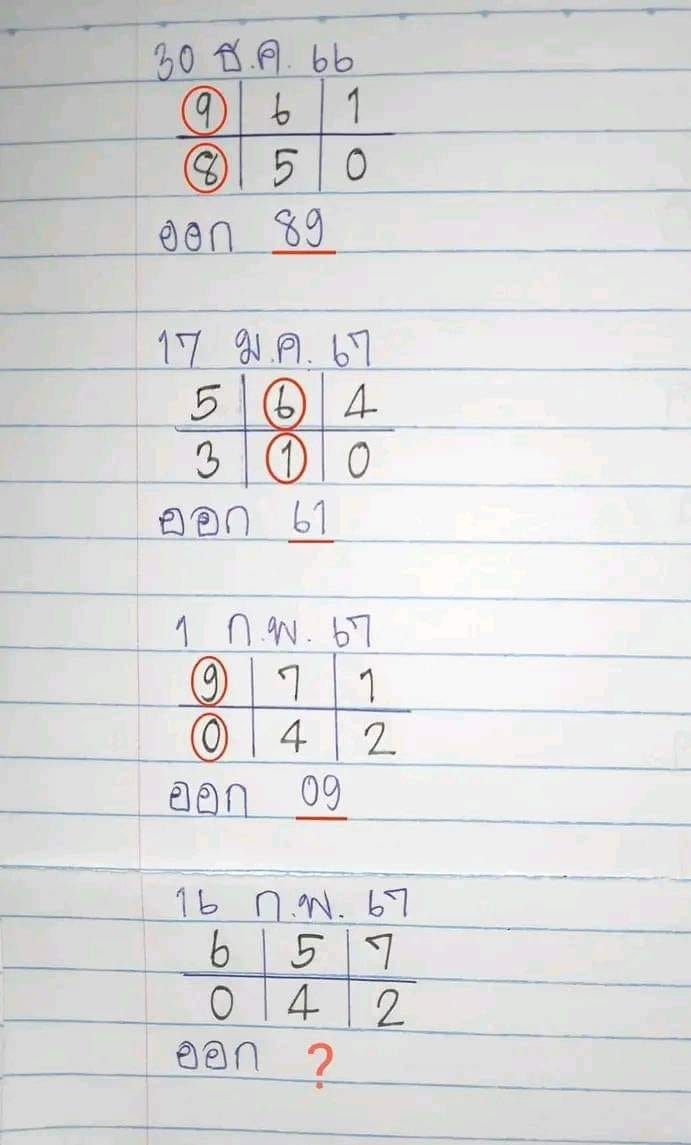 30 ธ.ค. 66
9 6 1
8 5 0
ออก 89
17 ม.ค. 67
5 6 4
3 1 0
ออก 61
1 ก.พ. 67
9 7 1
0 4 2
ออก 09
16 ก.พ. 67
6 5 7
0 4 2
ออก ?